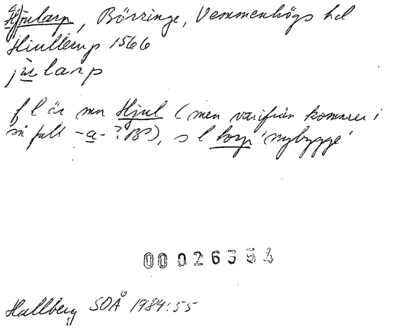 Hjularp, Börringe, Vemmenhögs hd
Hiullerup 1566
ju̇larp
f l är mn Hjul (men varifrån kommer i
så fall -a- ? BP), s l torp 'nybygge'
00026354
Hallberg SOÅ 1984:55